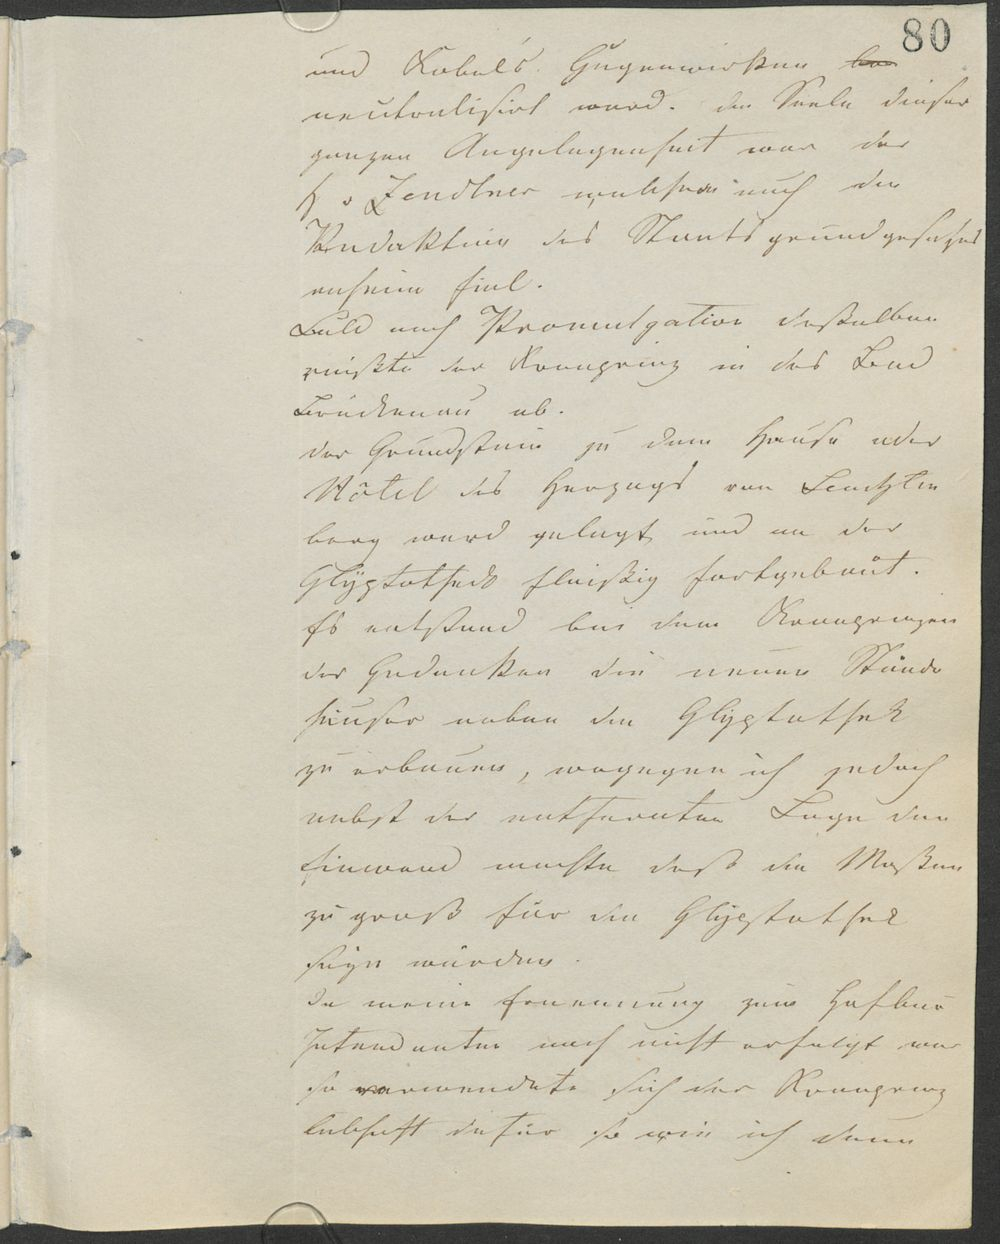 80
und Kabal's. Gegenwirken
neutralisirt ward. die Seele dieser
ganzen Angelegenheit war der
H v Zendtner welchem auch die
Redaktion des Staatsgrundgesetzes
anheim fiel.
Bald nach Promulgation desselben
reißte der Kronprinz in das Bad
Brückenau ab.
der Grundstein zu dem Hause oder
Hôtel des Herzogs von Leuchten
berg ward gelegt und an der
Glÿptothek fleißig fortgebaut.
Es entstand bei dem Kronprinzen
der Gedanken die neuen Stände
häuser neben der Glÿptothek
zu erbauen, wogegen ich jedoch
nebst der entfernten Lage den
Einwand machte daß die Maßen
zu groß für die Glÿptothek
seÿn würden.
da meine Ernennung zum Hofbau
Intendanten noch nicht erfolgt war
so verwendete sich der Kronprinz
lebhaft dafür so wie ich denn